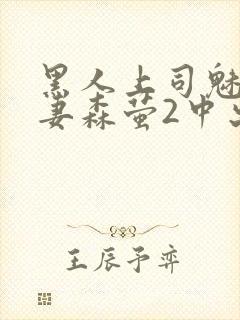 黑人上司魅
妻森萤2中出
王辰予弈